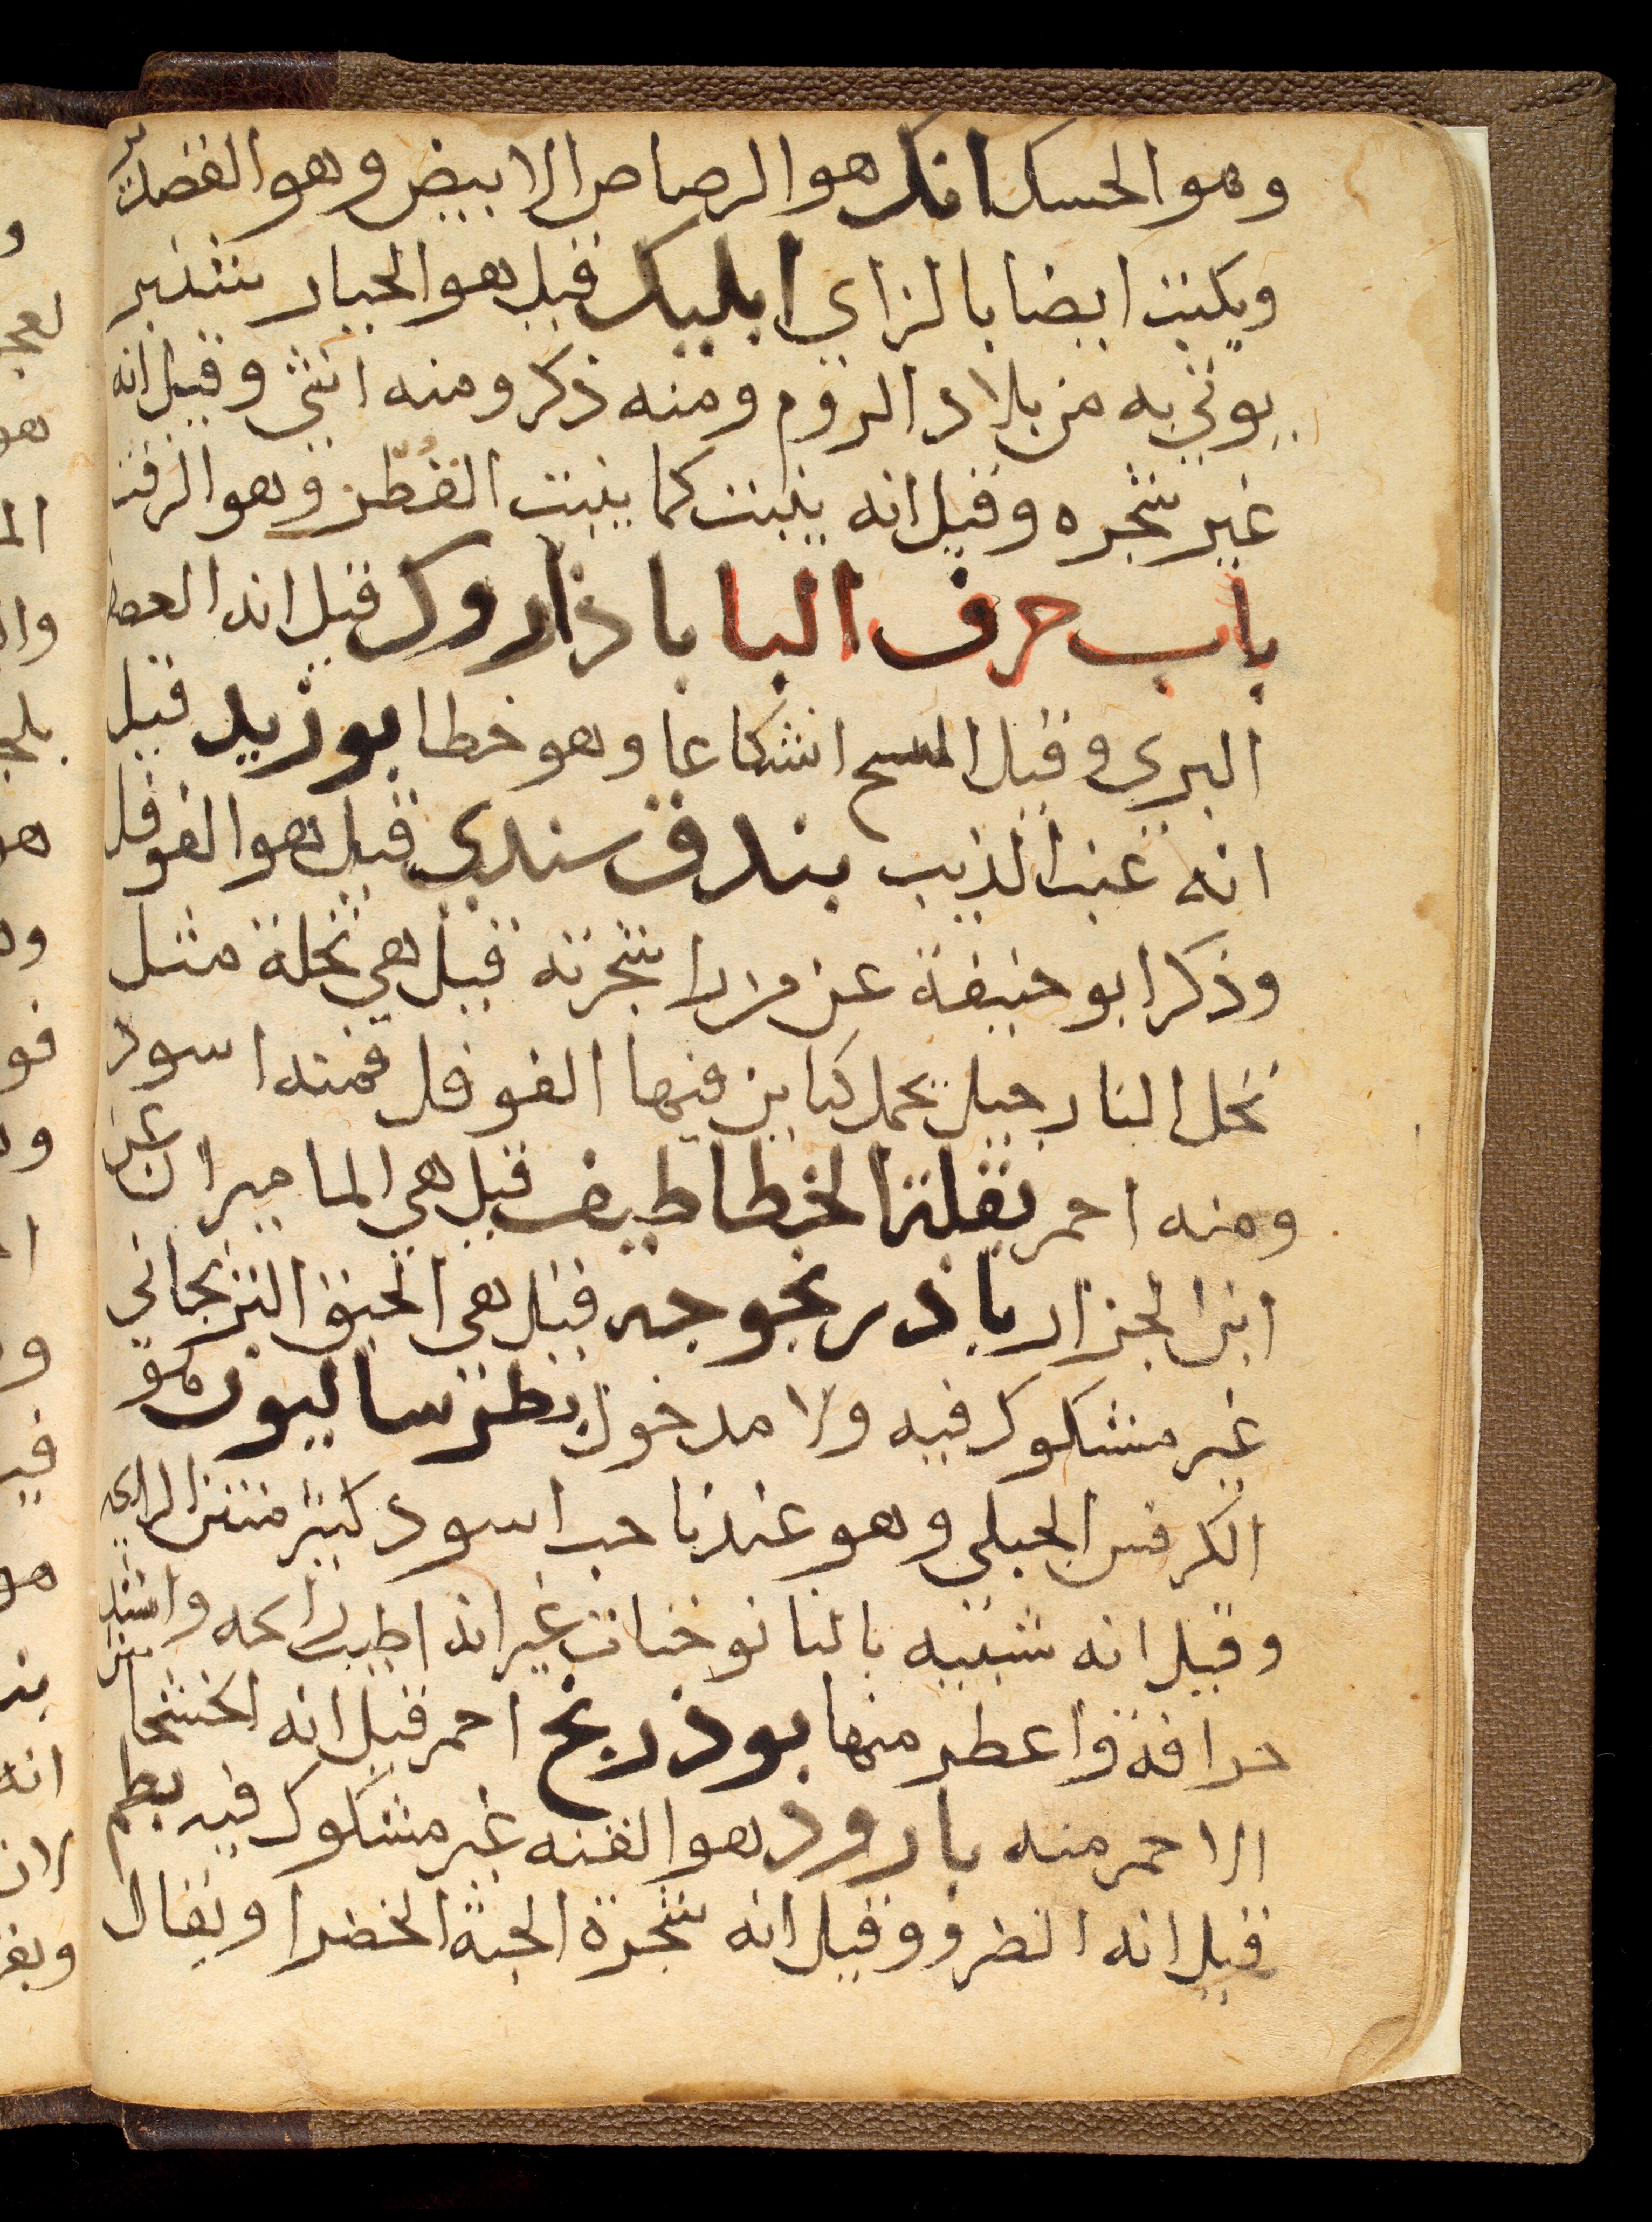 وهو الحسك انك هو الرصاص الابيض وهو القصدير
ويكتب ايضا بالزاي ابليك قيل هو الخيار شنبر
يوتي به من بلاد الروم ومنه ذكر ومنه انثي وقيل انه
غير شجره وقيل انه ينبت كما ينبت الفطر وهو الزفت
باب حرف البا باذاروك قيل انه
البري وقيل انشكاعا وهو خطا بوزيد قيل
انه عنب الذيب بندق سندي قيل هو الفوفل
وذكر ابو حنيفة عن شجرته قيل هي نخلة مثل
نخل النارجيل يحمل كبايس فيها الفوفل فمنه اسود
ومنه احمر بقلة الخطاطيف قيل هي الماميران عن
ابن الجزار باذرنجوجه قيل هي الحبق الترنجاني
غير مشكوك فيه ولا مدخول بطرساليون هو
الكرفس الجبلي وهو عندنا حب اسود كثير منتن الرايحه
وقيل انه شبيه بالنانوخات غير انه اطيب رائحه واشد
حرافة واعطر منها بوذريح احمر قيل انه الخشخاش
الاحمر منه بارود هو القنه غير مشكوك فيه بطم
قيل انه الضرو وقيل انه شجرة الحبة الخضرا ويقال